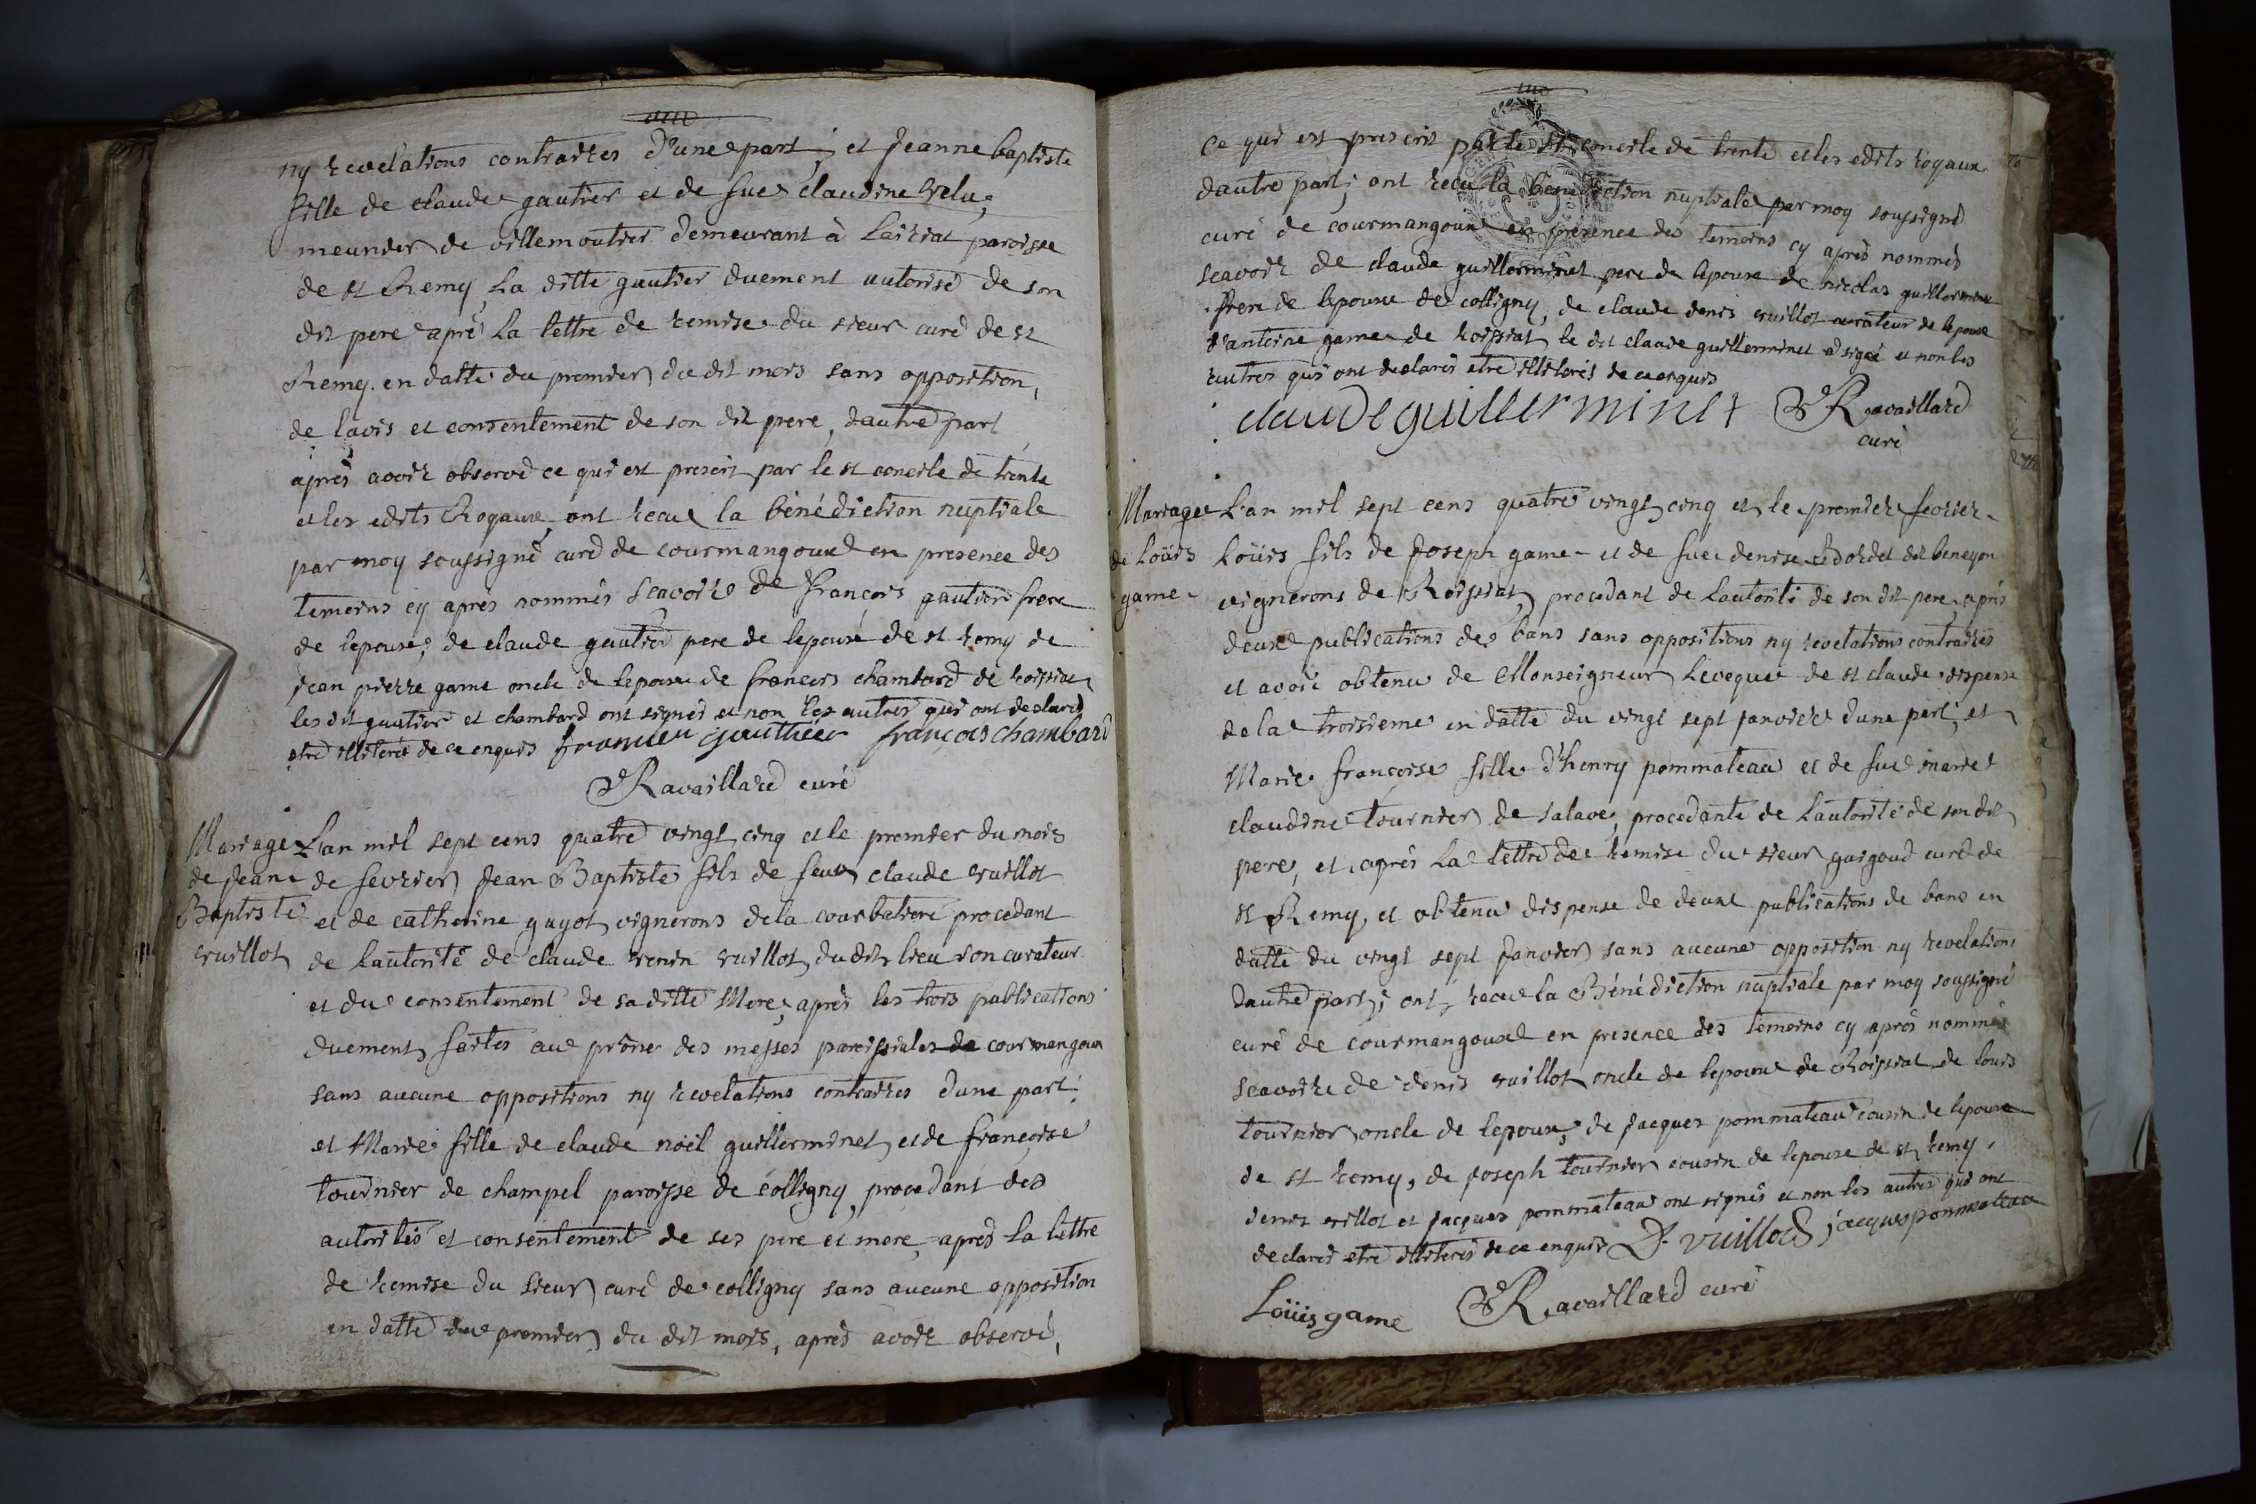 ny revelations contraires d'une part ; et Jeanne baptiste
fille de claude gautier et de fue claudine velu,
meunier de villemoutier demeurant à Lairiat paroisse
de st Remy, La ditte gautier duement autorisé de son
dit pere apré La lettre de remise du sieur curé de st
Remy. en datte du premier du dit mois sans opposition,
de lavis et consentement de son dit pere, dautre part
aprés avoir observé ce qui est prescrit par le st concile de trente
et les edits Royaux, ont recu la bénédiction nuptiale
par moy soussigné curé de courmangoux en presence des
temoins cy aprés nommés Scavoir de François gautier frere
de lepouse, de claude gautier pere de lepouse de st remy de
jean pierre game oncle de lepoux de francois chambard de roissiat
les dit gautier et chambard ont signés et non les autres qui ont declaré
etre illiterés de ce enquis Gauthier françois chambard
Ravaillard curé
Mariage
de Jean
Baptiste
vuillot
L'an mil sept cens quatre vingt cinq et le premier du mois
de fevrier Jean Baptiste fils de feu claude vuillot
et de catherine guyot vignerons de la courbatiere procedant
de Lautorité de claude vuillot du dit lieu son curateur
et du consentement de sa ditte Mere, aprés les trois publications
duement faites au prône des messes paroissiales de courmangoux
sans aucune oppositions ny revelations contraires d'une part,
et Marie fille de claude noël guillerminet et de françoise
tournier de champel paroisse de colligny, procedant des
autorités et consentement de ses pere et mere, aprés la lettre
de remise du sieur curé de colligny sans aucune opposition
en datte du premier du dit mois, aprés avoir observé,
ce qui est prescrit par le st concile de trente et les edits royaux
dautre part ; ont recu la benediction nuptiale par moy soussigné
curé de courmangoux en presence des temoins cy aprés nommés
scavoir de claude guillerminet pere de lepouse de nicolas guillerminet
frere de lepouse de colligny, de claude denis vuillot curateur de lepoux
d'antoine game de roissiat, le dit claude guillerminet a signé et non les
autres qui ont declarés etre illiterés de ce enquis
claude guillerminet Ravaillard
curé
Mariage
de Loüis
game
L'an mil sept cens quatre vingt cinq et le premier fevrier
Loüis fils de Joseph game et de fue denise dit beneyon
vignerons de Roissiat, procedant de Lautorité de son dit pere, aprés
deux publications des bans sans oppositions ny revelations contraires
et avoir obtenu de Monseigneur L'eveque de st claude dispense
de la troisieme en datte du vingt sept janvier d'une part, et
Marie françoise fille d'henry pommateau et de fue marie
claudine tournier de salave, procedante de Lautorité de son dit
pere, et aprés La lettre de remise du sieur guigoud curé de
st Remy, et obtenu dispense de deux publications de bans en
datte du vingt sept janvier sans aucune opposition ny revelations
dautre part ; ont recu la Bénédiction nuptiale par moy soussigné
curé de courmangoux en presence des temoins cy aprés nommés
scavoir de denis vuillot oncle de lepoux de Roissiat de louis
tournier oncle de lepouse, de jacques pommateau cousin de lepouse
de st remy, de joseph tournier cousin de lepouse de st remy,
denis villot et jacques pommateau ont signés et non les autres qui ont
declaré etre illiterés de ce enquis D. vuillod jacques pommateau
Loüis game Ravaillard curé